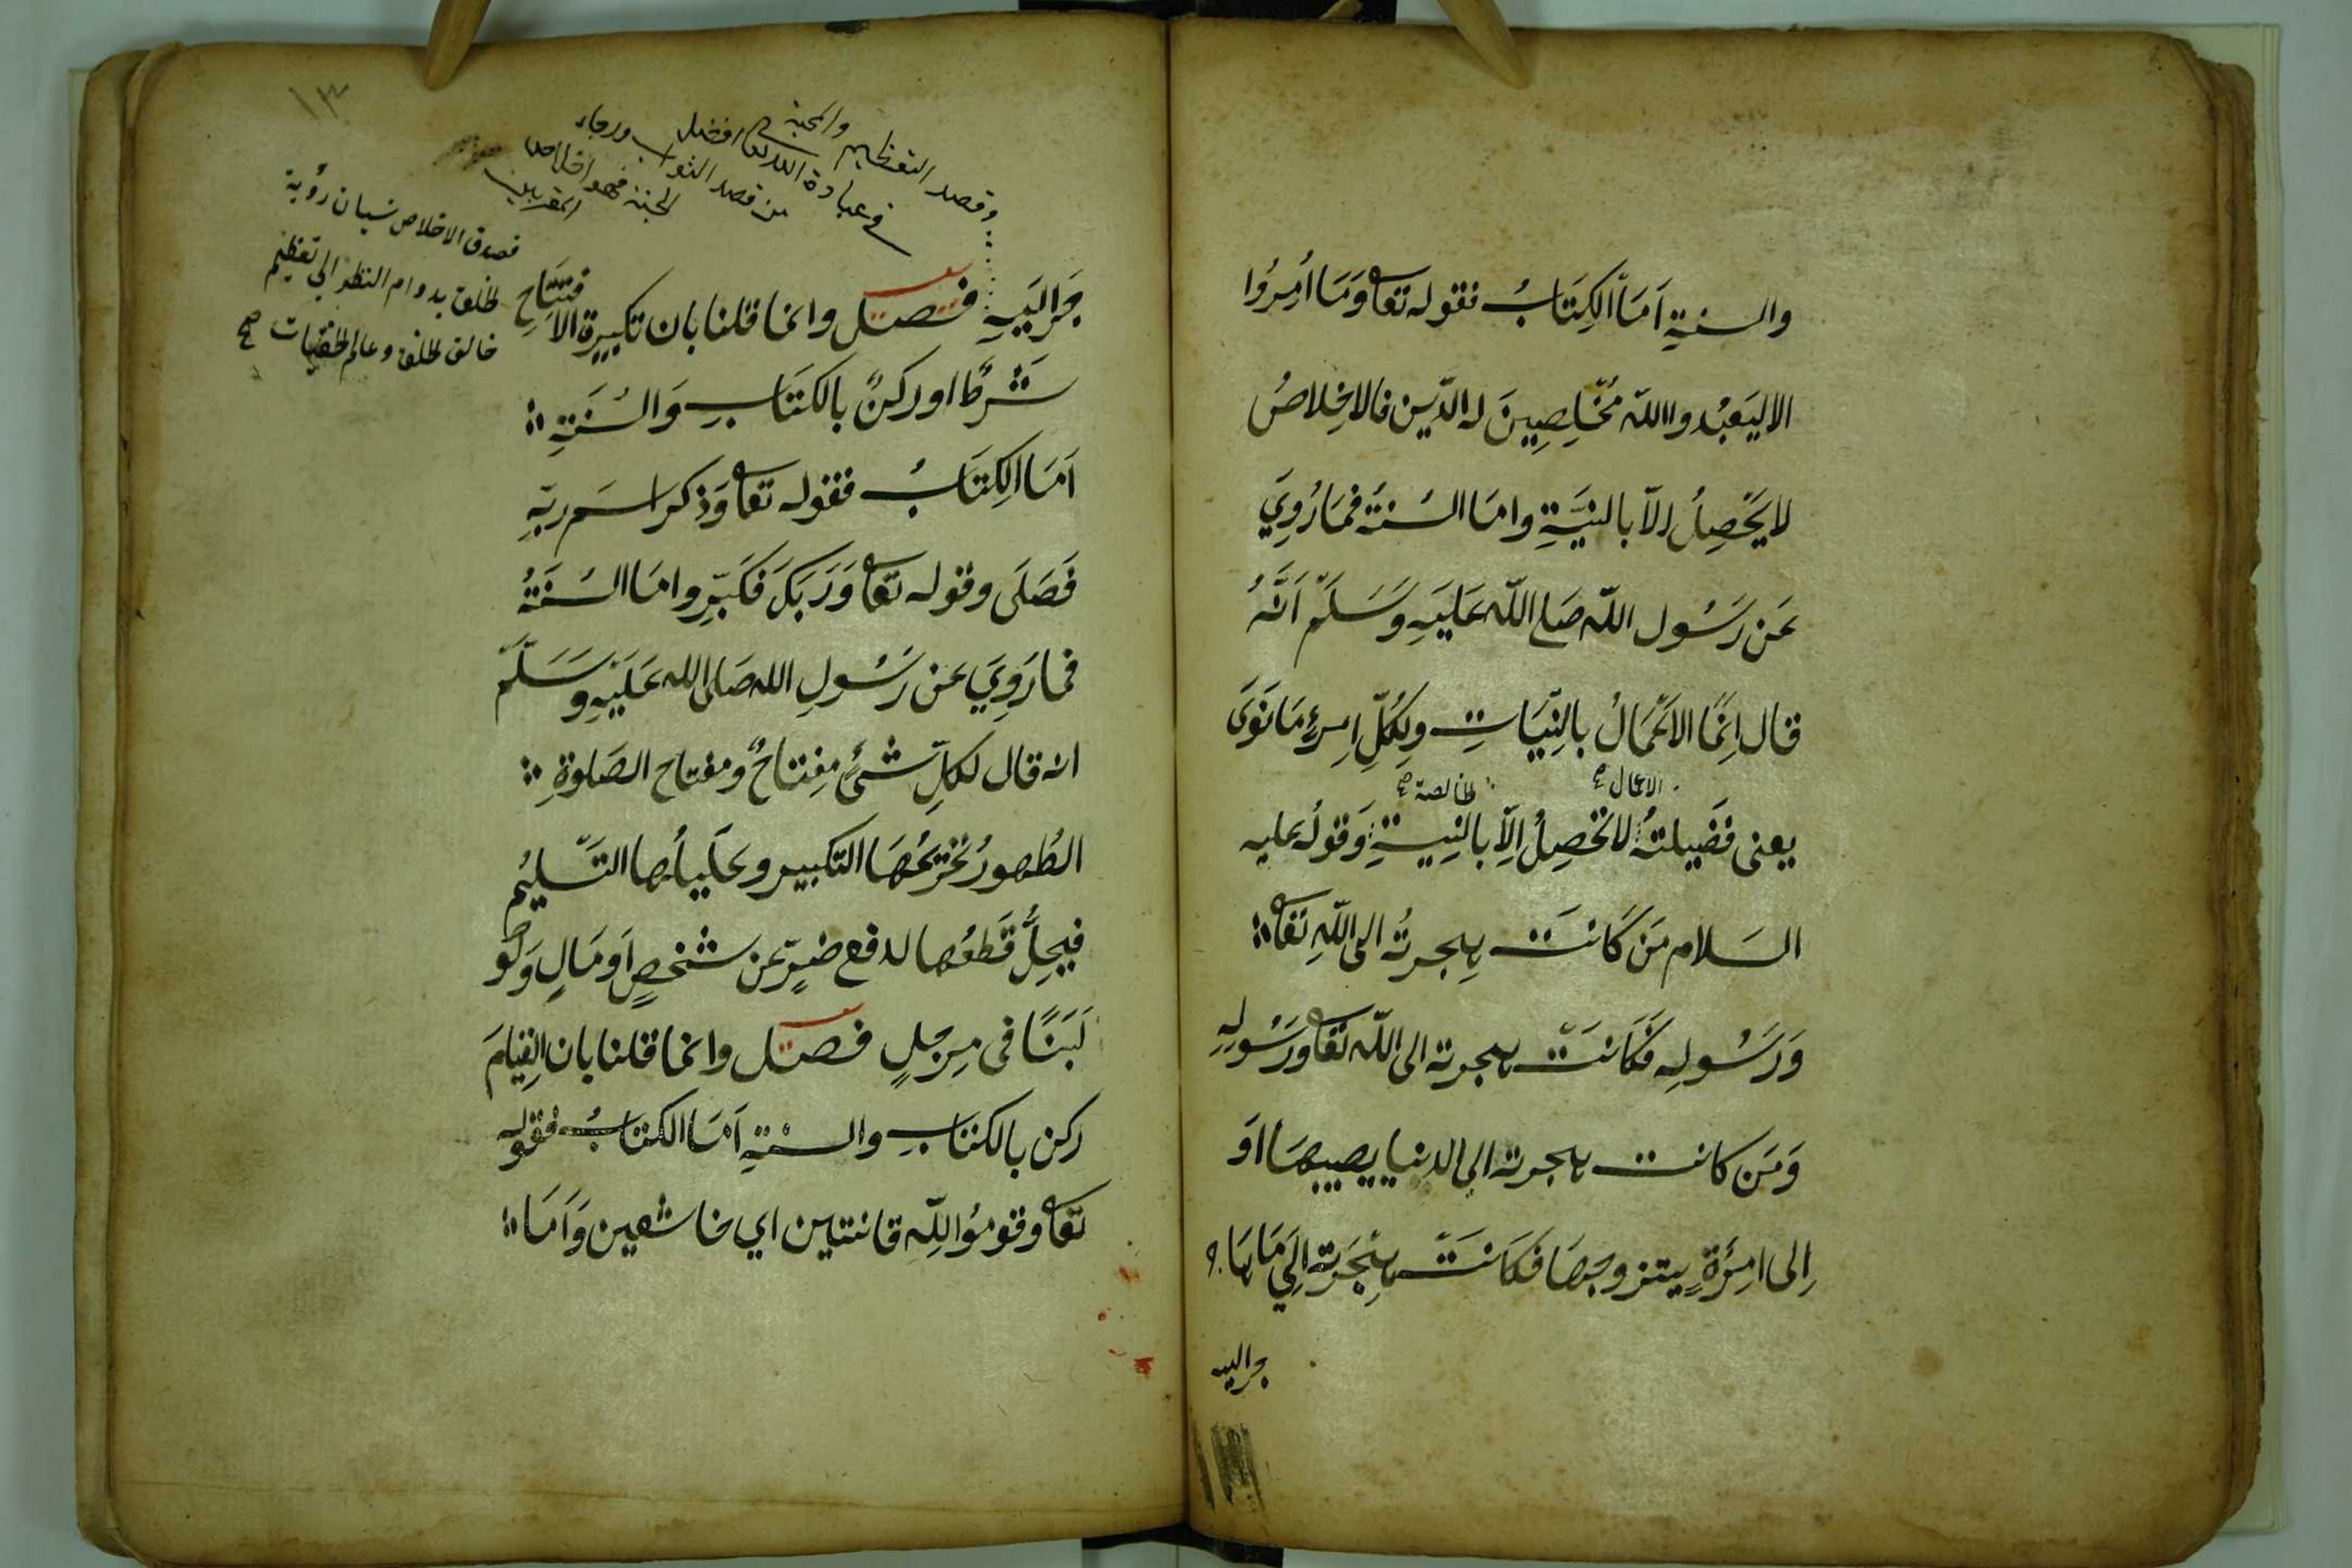 والسنةِ اَمَّا الكِتَابُ فقوله تعا وَمَا اُمِرُوا
الا ليَعْبُدوا اللّه مُخْلِصِينَ له الدّين فالاخِلاصُ
لا يَحْصِلُ اِلاّ بالنيَّةِ وامَا السُنةُ فمَا رُوِيَ
عَن رَسُول اللّه صَلى اللّه عَليَهِ وَسَلَّم اَنَّهُ
قال اِنمَّا الاَعْمَالُ بالِنيّاتِ ولِكُلِّ امِرِءٍ مَا نَوَى
الاعمال صح
الخالصة صح
يعنى فضَيلتهُ لا تحْصِلُ اِلاّ بالنِيةِ وَقولُه عليه
السَلام مَن كَانتَ هِجرتُه الى اللّهِ تَعَا
وَرَسُولِه فكَاَنتَ هجرته الى اللّه تَعَا وَرَسُولِهِ
وَمَن كانت هجرته الى الدنيا يصيبهَا اَو
اِلى امِرَأةٍ يتزوجهَا فكَانَتَ هِجْرَته اِلَى مَا هَا
جر اليه
١٣
وقصد التعظيم والمحبة
في عبادة الله تعا افضل
من قصد الثواب ورجاء
الجنة فهو اخلاص
المقربين
فصدق الاخلاص نسيان رؤية
الخلق بدوام النظر الى تعظيم
خالق الخلق وعالم الخفيات صح
جَر اليَهِ فصل وانما قلنا بان تكبيرة الافتِتَاحِ
شَرطٌ او ركنٌ بالكتَابِ وَالسُنَةِ
اَمَا الكِتَابُ فقوله تعا وَذكر اسَم ربّهِ
فَصَلَى وقوله تعا وَرَبَكَ فَكَبّرِ وامَا السُنَةُ
فما رَوِيَ عَن رَسُولِ الله صَلى الله عَلَيْهِ وَسَلَّمَ
انه قال لكلّ شئٍ مِفتاحٌ ومفتاح الصَلوةِ
الطُهورُ تحْريمُهَا التكبير وتحَليلُها التَسليُم
فيحِلُّ قَطعُها لدفع ضرٍّ عن شخصٍ اَو مَالٍ وَلَو
لَبَنًا فى مِرجلٍ فصل وانما قلنا بان القِيَامَ
ركن بالكتابِ والسنةِ اَمَا الكتابُ فقوله
تعا وقومُوا للّه قانتين اي خاشعين وَاَمَا